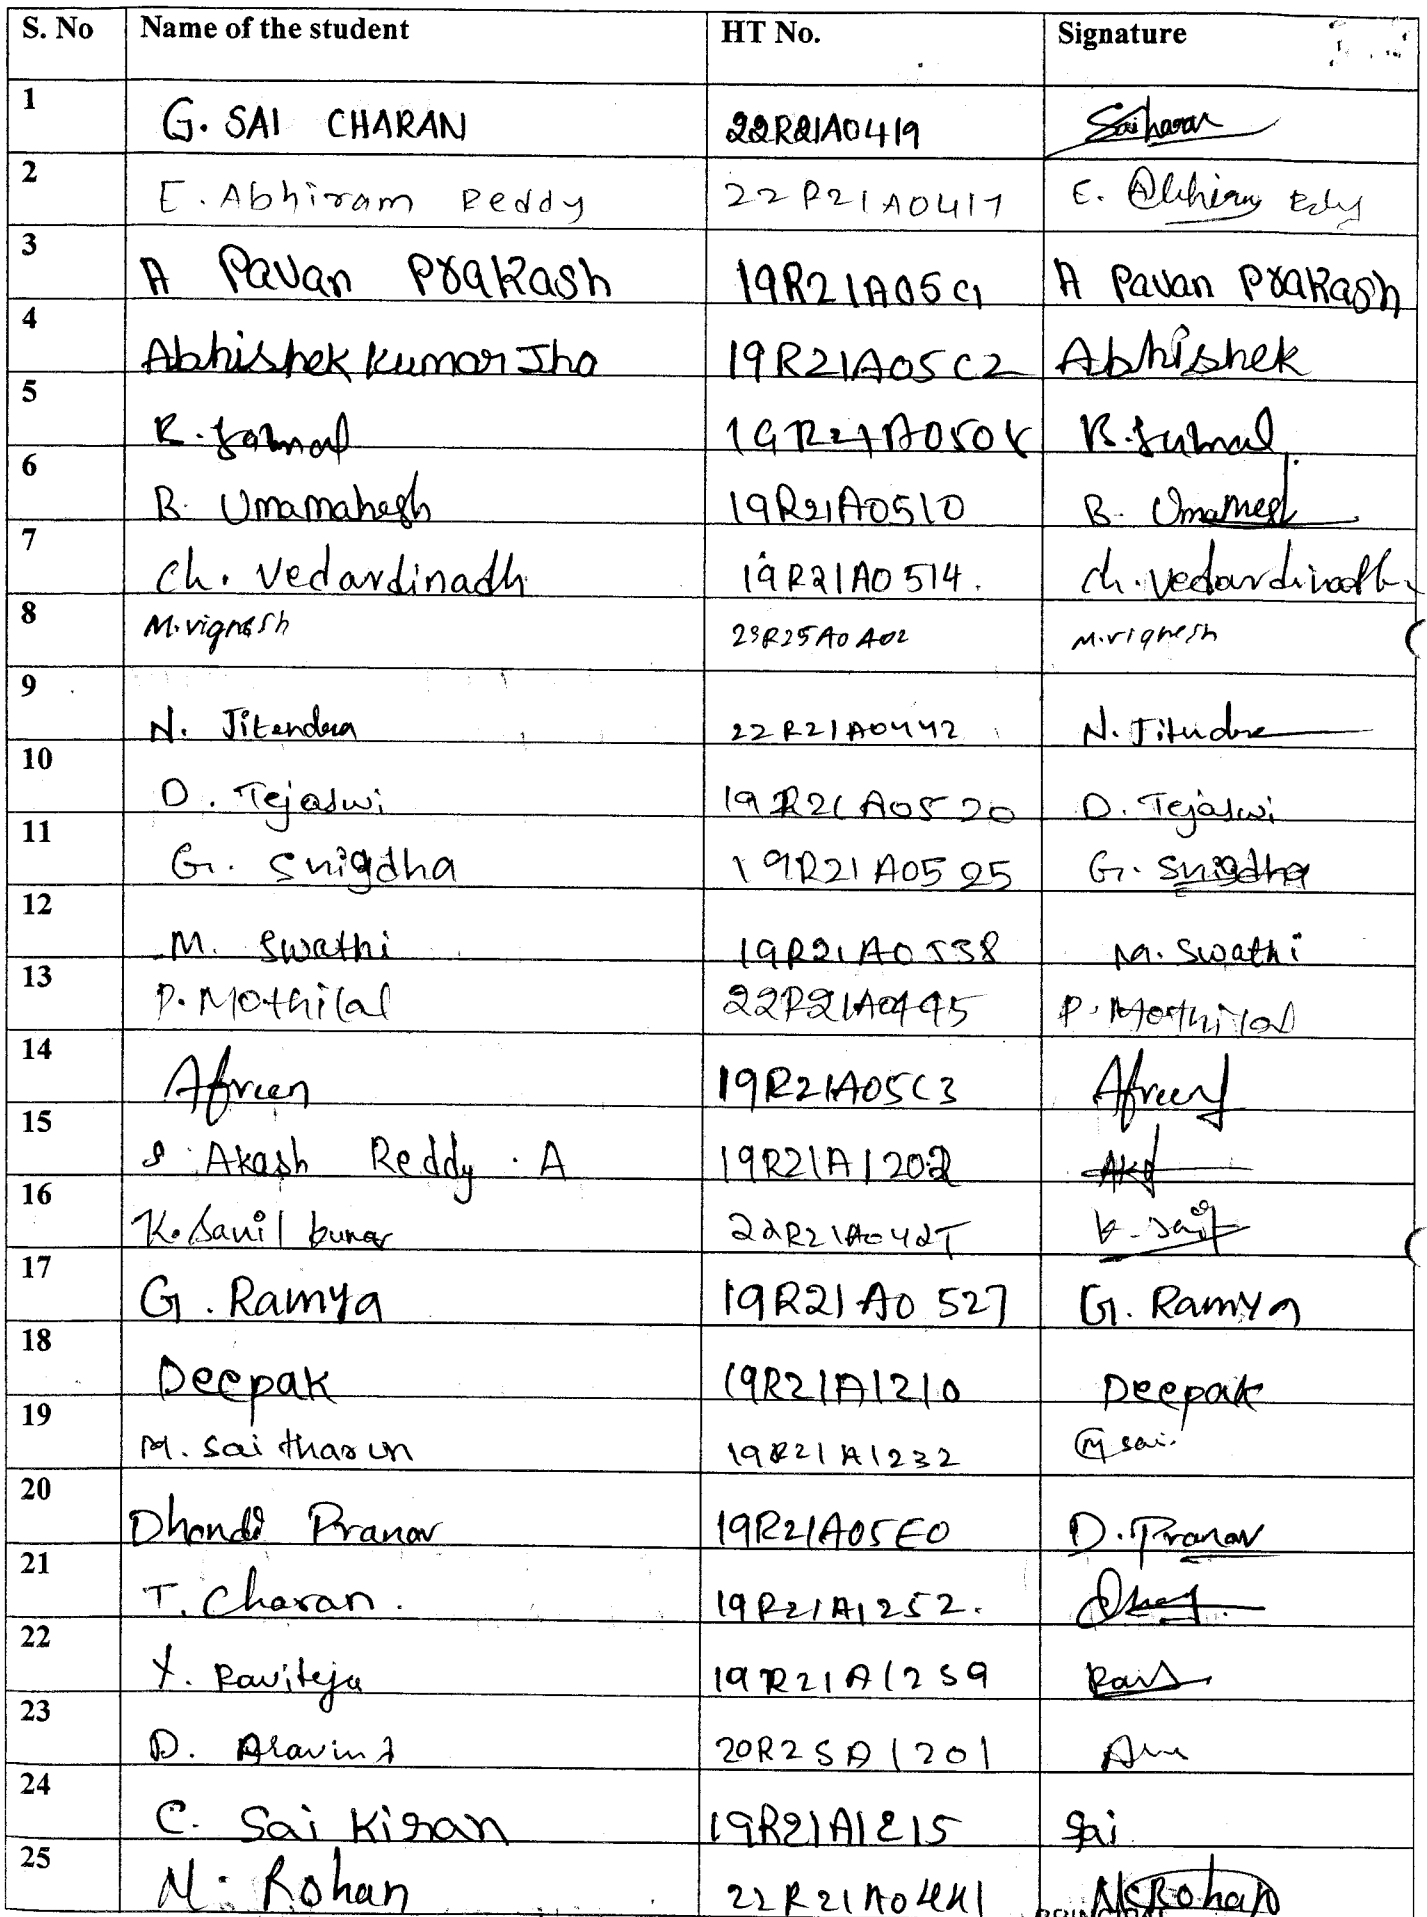 S. No Name of the student HT No. Signature
1 G. SAI CHARAN 22R21A0419 Saicharan
2 E. Abhiram Reddy 22R21A0417 E. Abhiram Rdy
3 A Pavan Prakash 19R21A05C1 A Pavan Prakash
4 Abhishek Kumar Jha 19R21A05C2 Abhishek
5
6 B. Umamahesh 19R21A0510 B. Umamesh
7 Ch. Vedardinadh 19R21A0514. Ch. Vedardinadh
8 M.vignesh 23R25A0402 M.vignesh
9 N. Jitendra 22R21A0442 N. Jitendra
10 D. Tejaswi 19R21A0520 D. Tejaswi
11 G. Snigdha 19R21A0525 G. Snigdha
12 M. Swathi 19R21A0538 M. Swathi
13 P. Mothilal 22R21A0445 P. Mothilal
14 Afreen 19R21A05C3 Afreen
15 S Akash Reddy . A 19R21A1202
16 K. Sunil kumar
17 G. Ramya 19R21A0527 G. Ramya
18 Deepak 19R21A1210 Deepak
19 M. Sai tharun 19R21A1232 M sai.
20 Dhondi Pranav 19R21A05E0 D. Pranav
21 T. Charan. 19R21A1252.
22 Y. Raviteja 19R21A1259
23 D. Aravind 20R25A1201
24 C. Sai Kiran 19R21A1215 Sai
25 N. Rohan 22R21A0441 N Rohan
PRINCIPAL